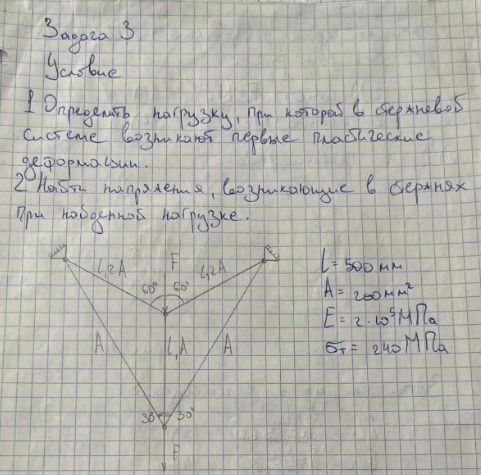 Задача 3
Условие
1 Определить нагрузку, при которой в стержневой
системе возникают первые пластические
деформации.
2 Найти напряжения, возникающие в стержнях
при найденной нагрузке.
l,2A
F
l,2A
60° 60°
l = 500 мм
A = 200 мм²
E = 2·10⁵ МПа
σт = 240 МПа
A
l,A
A
30° 30°
F